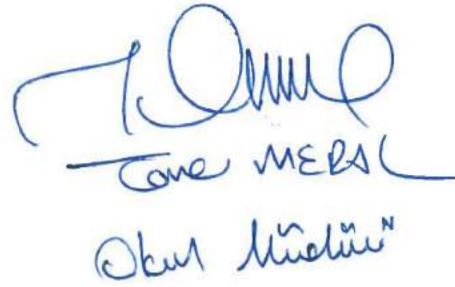 Taner MERAL
Okul Müdürü